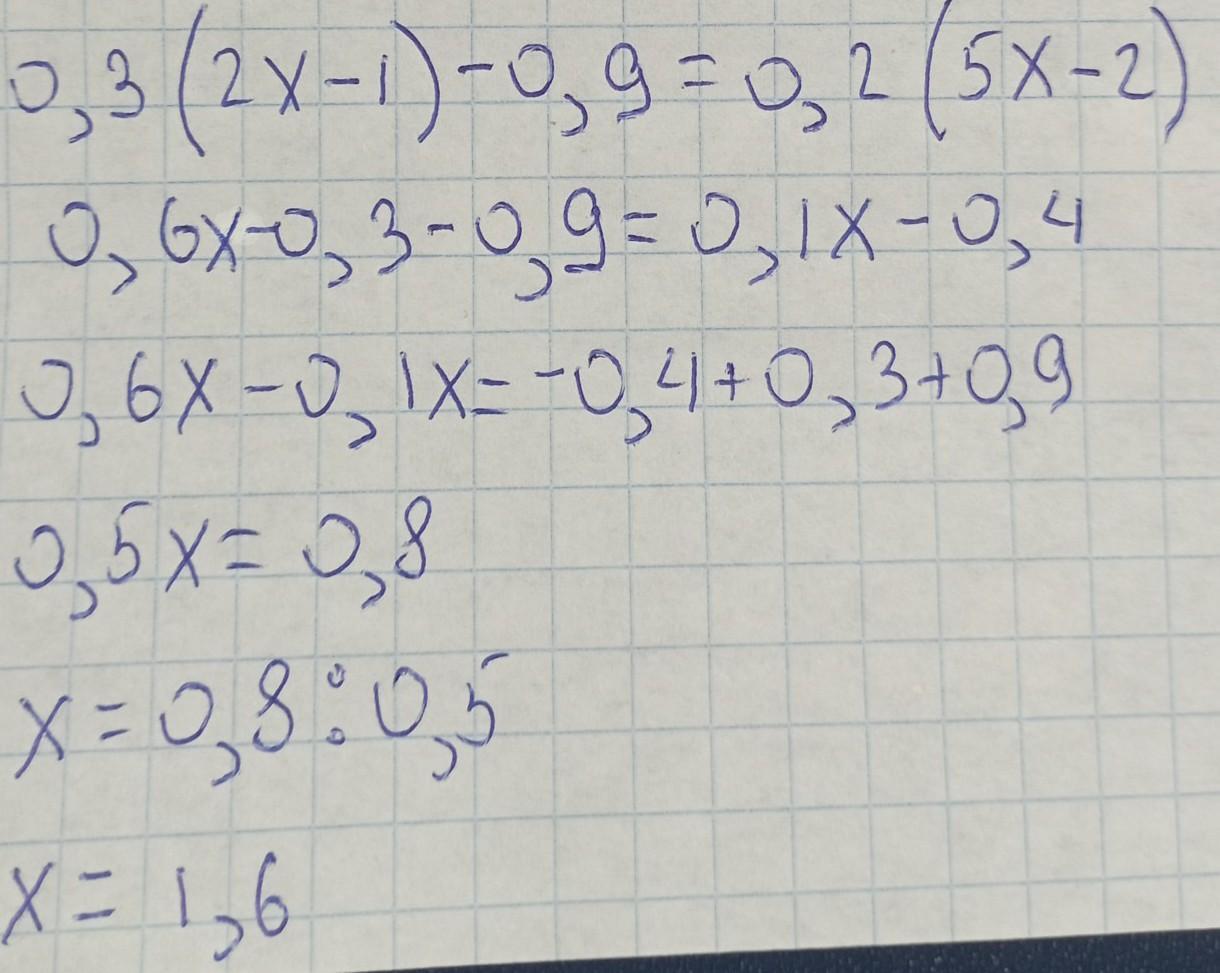 0,3(2x-1)-0,9=0,2(5x-2)
0,6x-0,3-0,9=0,1x-0,4
0,6x-0,1x=-0,4+0,3+0,9
0,5x=0,8
x=0,8:0,5
x=1,6